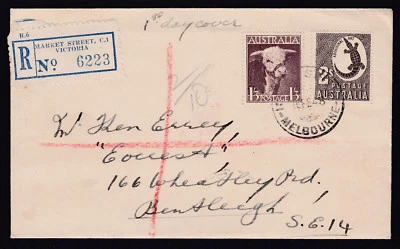 R.6
MARKET STREET, C.1
VICTORIA
R No 6223
1st day cover
AUSTRALIA
1'3 POSTAGE 1'3
2/-
POSTAGE
AUSTRALIA
MELBOURNE
2/10
Mr Ken Eurey
166 Wheatley Rd.
Bentleigh
S.E.14